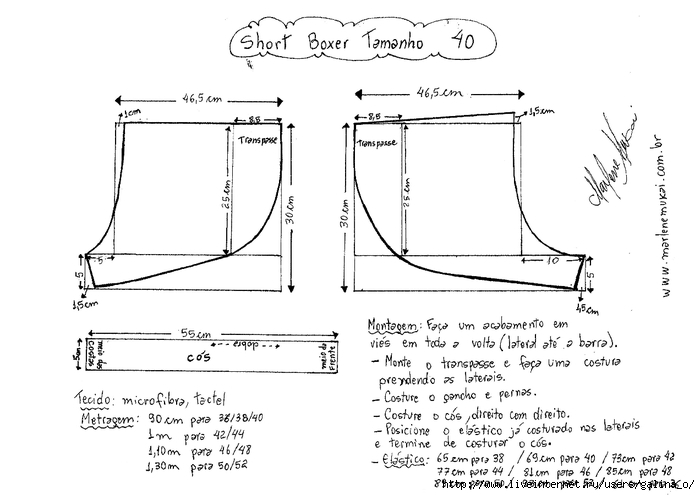 Short Boxer Tamanho 40
46,5 cm
1 cm
8,5
Transpasse
25 cm
30 cm
5
5
1,5 cm
46,5 cm
8,5
1,5 cm
Transpasse
25 cm
30 cm
10
5
www.marlenemukai.com.br
55 cm
5 cm
meio das costas
cós
dobra
meio da frente
Tecido: microfibra, tactel
Metragem: 90 cm para 38/38/40
1 m para 42/44
1,10 m para 46/48
1,30 m para 50/52
Montagem: Faça um acabamento em
viés em toda a volta (lateral até a barra).
- Monte o transpasse e faça uma costura
prendendo as laterais.
- Costure o gancho e pernas.
- Costure o cós, direito com direito.
- Posicione o elástico já costurado nas laterais
e termine de costurar o cós.
- Elástico: 65 cm para 38 / 69 cm para 40 / 73 cm para 42
77 cm para 44 / 81 cm para 46 / 85 cm para 48